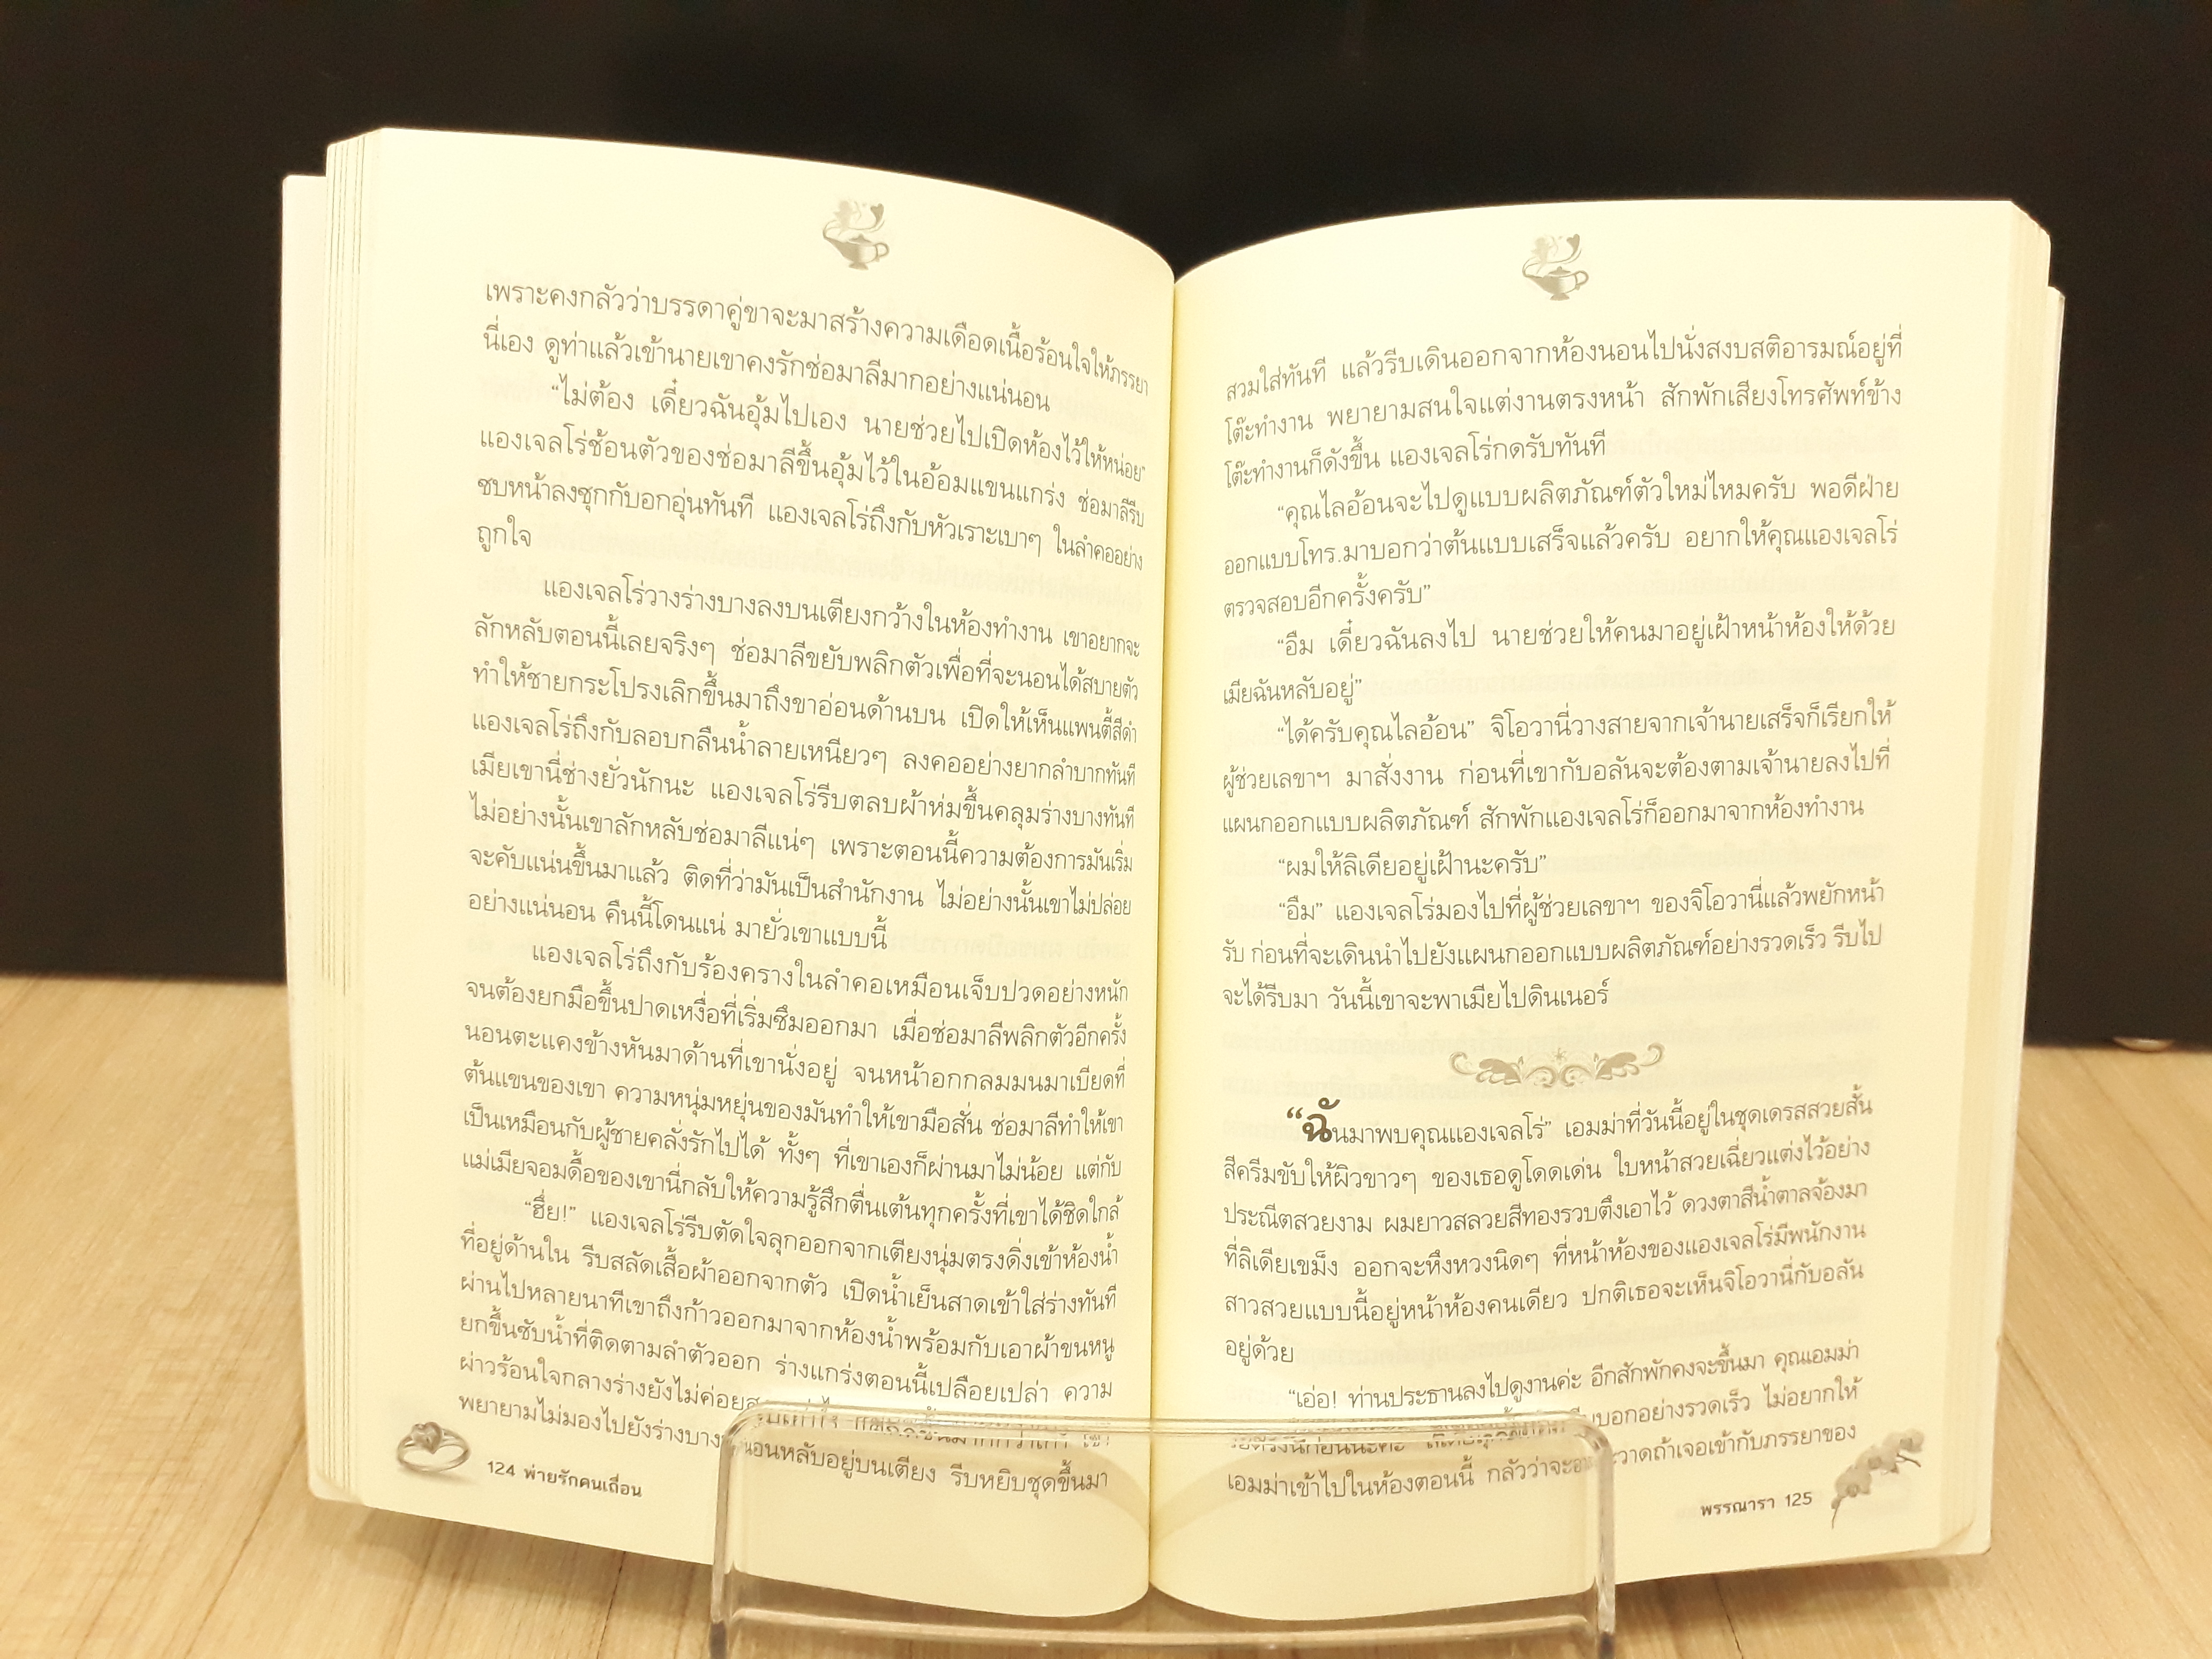 เพราะคงกลัวว่าบรรดาคู่ขาจะมาสร้างความเดือดเนื้อร้อนใจให้ภรรยา
นี่เอง ดูท่าแล้วเจ้านายเขาคงรักช่อมาลีมากอย่างแน่นอน
“ไม่ต้อง เดี๋ยวฉันอุ้มไปเอง นายช่วยไปเปิดห้องไว้ให้หน่อย”
แองเจลโร่ช้อนตัวของช่อมาลีขึ้นอุ้มไว้ในอ้อมแขนแกร่ง ช่อมาลีรีบ
ซบหน้าลงซุกกับอกอุ่นทันที แองเจลโร่ถึงกับหัวเราะเบาๆ ในลำคออย่าง
ถูกใจ
แองเจลโร่วางร่างบางลงบนเตียงกว้างในห้องทำงาน เขาอยากจะ
ลักหลับตอนนี้เลยจริงๆ ช่อมาลีขยับพลิกตัวเพื่อที่จะนอนได้สบายตัว
ทำให้ชายกระโปรงเลิกขึ้นมาถึงขาอ่อนด้านบน เปิดให้เห็นแพนตี้สีดำ
แองเจลโร่ถึงกับลอบกลืนน้ำลายเหนียวๆ ลงคออย่างยากลำบากทันที
เมียเขานี่ช่างยั่วนักนะ แองเจลโร่รีบตลบผ้าห่มขึ้นคลุมร่างบางทันที
ไม่อย่างนั้นเขาลักหลับช่อมาลีแน่ๆ เพราะตอนนี้ความต้องการมันเริ่ม
จะคับแน่นขึ้นมาแล้ว ติดที่ว่ามันเป็นสำนักงาน ไม่อย่างนั้นเขาไม่ปล่อย
อย่างแน่นอน คืนนี้โดนแน่ มายั่วเขาแบบนี้
แองเจลโร่ถึงกับร้องครางในลำคอเหมือนเจ็บปวดอย่างหนัก
จนต้องยกมือขึ้นปาดเหงื่อที่เริ่มซึมออกมา เมื่อช่อมาลีพลิกตัวอีกครั้ง
นอนตะแคงข้างหันมาด้านที่เขานั่งอยู่ จนหน้าอกกลมมนมาเบียดที่
ต้นแขนของเขา ความหนุ่มหยุ่นของมันทำให้เขามือสั่น ช่อมาลีทำให้เขา
เป็นเหมือนกับผู้ชายคลั่งรักไปได้ ทั้งๆ ที่เขาเองก็ผ่านมาไม่น้อย แต่กับ
แม่เมียจอมดื้อของเขานี่กลับให้ความรู้สึกตื่นเต้นทุกครั้งที่เขาได้ชิดใกล้
“ฮึ่ย!” แองเจลโร่รีบตัดใจลุกออกจากเตียงนุ่มตรงดิ่งเข้าห้องน้ำ
ที่อยู่ด้านใน รีบสลัดเสื้อผ้าออกจากตัว เปิดน้ำเย็นสาดเข้าใส่ร่างทันที
ผ่านไปหลายนาทีเขาถึงก้าวออกมาจากห้องน้ำพร้อมกับเอาผ้าขนหนู
ยกขึ้นซับน้ำที่ติดตามลำตัวออก ร่างแกร่งตอนนี้เปลือยเปล่า ความ
ผ่าวร้อนใจกลางร่างยังไม่ค่อย
พยายามไม่มองไปยังร่างบาง นอนหลับอยู่บนเตียง รีบหยิบชุดขึ้นมา
124 พ่ายรักคนเถื่อน
สวมใส่ทันที แล้วรีบเดินออกจากห้องนอนไปนั่งสงบสติอารมณ์อยู่ที่
โต๊ะทำงาน พยายามสนใจแต่งานตรงหน้า สักพักเสียงโทรศัพท์ข้าง
โต๊ะทำงานก็ดังขึ้น แองเจลโร่กดรับทันที
“คุณไลอ้อนจะไปดูแบบผลิตภัณฑ์ตัวใหม่ไหมครับ พอดีฝ่าย
ออกแบบโทร.มาบอกว่าต้นแบบเสร็จแล้วครับ อยากให้คุณแองเจลโร่
ตรวจสอบอีกครั้งครับ”
“อืม เดี๋ยวฉันลงไป นายช่วยให้คนมาอยู่เฝ้าหน้าห้องให้ด้วย
เมียฉันหลับอยู่”
“ได้ครับคุณไลอ้อน” จิโอวานี่วางสายจากเจ้านายเสร็จก็เรียกให้
ผู้ช่วยเลขาฯ มาสั่งงาน ก่อนที่เขากับอลันจะต้องตามเจ้านายลงไปที่
แผนกออกแบบผลิตภัณฑ์ สักพักแองเจลโร่ก็ออกมาจากห้องทำงาน
“ผมให้ลิเดียอยู่เฝ้านะครับ”
“อืม” แองเจลโร่มองไปที่ผู้ช่วยเลขาฯ ของจิโอวานี่แล้วพยักหน้า
รับ ก่อนที่จะเดินนำไปยังแผนกออกแบบผลิตภัณฑ์อย่างรวดเร็ว รีบไป
จะได้รีบมา วันนี้เขาจะพาเมียไปดินเนอร์
“ฉันมาพบคุณแองเจลโร่” เอมม่าที่วันนี้อยู่ในชุดเดรสสวยสั้น
สีครีมขับให้ผิวขาวๆ ของเธอดูโดดเด่น ใบหน้าสวยเฉี่ยวแต่งไว้อย่าง
ประณีตสวยงาม ผมยาวสลวยสีทองรวบตึงเอาไว้ ดวงตาสีน้ำตาลจ้องมา
ที่ลิเดียเขม็ง ออกจะหึงหวงนิดๆ ที่หน้าห้องของแองเจลโร่มีพนักงาน
สาวสวยแบบนี้อยู่หน้าห้องคนเดียว ปกติเธอจะเห็นจิโอวานี่กับอลัน
อยู่ด้วย
“เอ่อ! ท่านประธานลงไปดูงานค่ะ อีกสักพักคงจะขึ้นมา คุณเอมม่า
บอกอย่างรวดเร็ว ไม่อยากให้
เอมม่าเข้าไปในห้องตอนนี้ กลัวว่าจะ วาดถ้าเจอเข้ากับภรรยาของ
พรรณารา 125